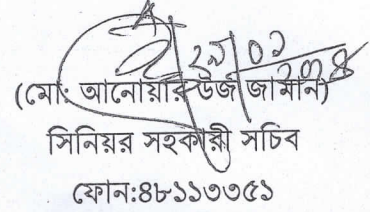 ২৯/০১
২০২৪
(মো: আনোয়ার উর্জ জামান)
সিনিয়র সহকারী সচিব
ফোন:৪৮১১৩৩৫১